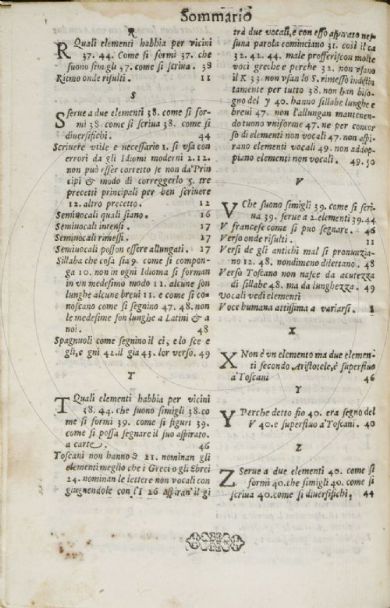 Sommario
R
R Quali elementi habbia per vicini
37. 44. Come si formi 37. che
suono simigli 47. come si scriua. 38
Ritmo onde risulti. 11
S
S serue a due elementi 38. come si for-
mi 38. come si scriua 38. come si
diuersifichi. 44
Scriuere vtile e necessario 1. si vsa con
errori da gli Idiomi moderni 2. 12.
non può esser corretto se non da' Prin
cipi & modo di correggerlo 5. tre
precetti principali per ben scriuere
12. altro precetto. 12
Semiuocali quali siano. 16
Semiuocali intensi. 17
Semiuocali rimessi. 17
Semiuocali posson essere allungati. 17
Sillaba che cosa sia 9. come si compon-
ga 10. non in ogni Idioma si forman
in vn medesimo modo 11. alcune son
lunghe alcune breui 11. e come si co-
noscano come si segnino 47. 48. non
le medesime son lunghe a Latini & a
noi. 48
Spagnuoli come segnino il ci, e lo sce e
gli, e gni 42. il gia 43. lor verso. 49
T
T Quali elementi habbia per vicini
38. 44. che suono simigli 38. co
me si formi 39. come si figuri 39.
come si possa segnare il suo aspirato.
a carte. 46
Toscani non hanno & 21. nominan gli
elementi meglio che i Greci o gli Ebrei
24. nominan le lettere non vocali con
giugnendole con l'I 26 aspiran' il gi
trà due vocali, e con esso aspirato nes-
suna parola cominciano 31. così il ca
32. 41. 44. male profferiscon molte
voci greche e perche 32. non vsano
il K 33. non vsan lo S. rimesso indistin
tamente per tutto 38. non han biso
gno del y 40. hanno sillabe lunghe e
breui 47. non l'allungan mantenen-
do tuono vniforme 47. ne per concor
so di elementi non vocali 47. non aspi-
rano elementi vocali 49. non addop-
piano elementi non vocali. 49. 50
V
V Che suono simigli 39. come si scri-
ua 39. serue a 2. elementi 39. 44
V francese come si può segnare. 46
Verso onde risulti. 11
Versi de gli antichi mal si pronunzia-
no 12. 48. nondimeno dilettano. 48
Verso Toscano non nasce da acutezza
di sillabe 48. ma da lunghezza. 49
vocali vedi elementi
Voce humana attissima a variarsi. 8
X
X Non è vn elemento ma due elemen-
ti secondo Aristotele, è superfluo
a' Toscani 46
Y
Y Perche detto fio 40. era segno del
V 40. e superfluo a' Toscani. 40
Z
Z Serue a due elementi 40. come si
formi 40. che simigli 40. come si
scriua 40. come si diuersifichi, 44